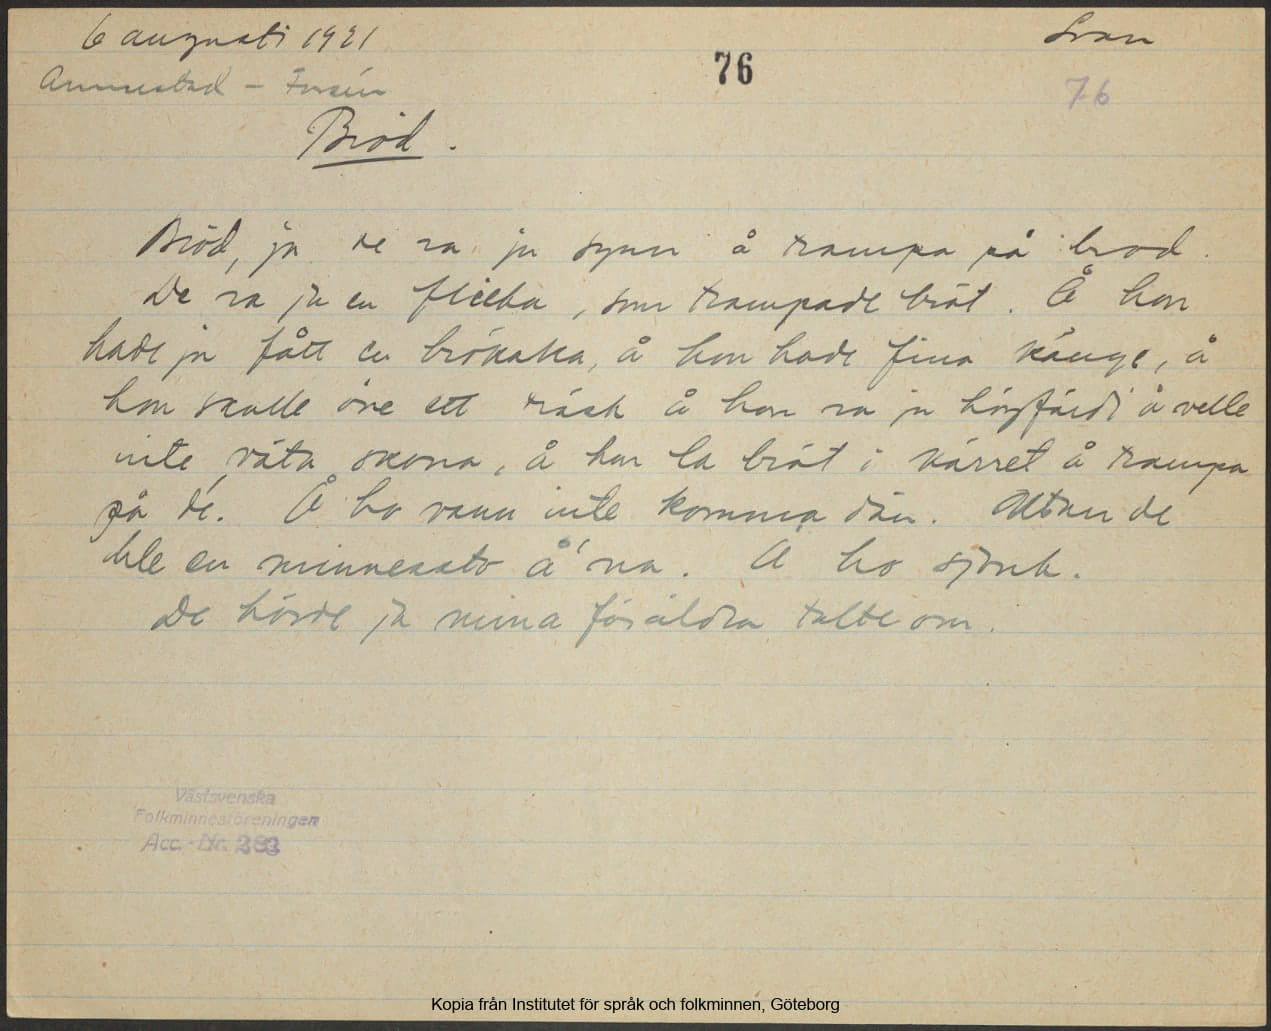 6 augusti 1921
Svan
76
76
Annestad - Forsén
Bröd.
Bröd, ja de va ju synn å trampa på bröd.
De va ju en flicka, som trampade bröt. Å hon
hade ju fått en brökaka, å hon hade fina känge, å
hon skulle öve ett träsk å hon va ju högfärdi å velle
inte väta skona, å hon la bröt i kärret å trampa
på dé. Å ho vann inte komma dän. Uttan de
ble en minnessto å' na. Å ho sjönk.
De hörde ja mina föräldra talte om.
Västsvenska
Folkminnesföreningen
Acc.-Nr. 283
Kopia från Institutet för språk och folkminnen, Göteborg